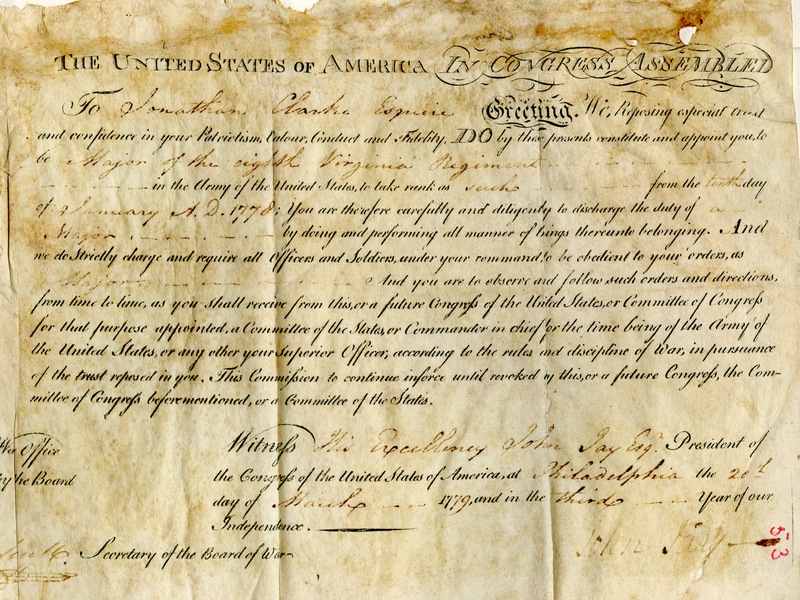 THE UNITED STATES OF AMERICA IN CONGRESS ASSEMBLED
To Jonathan Clarke Esquire Greeting. We, Reposing especial trust
and confidence in your Patriotism, Valour, Conduct and Fidelity, DO by these presents constitute and appoint you, to
be Major of the eighth Virginia Regiment
in the Army of the United States, to take rank as such from the tenth day
of January A.D. 1778: You are therefore carefully and diligently to discharge the duty of a
Major by doing and performing all manner of things thereunto belonging. And
we do Strictly charge and require all Officers and Soldiers, under your command to be obedient to your orders, as
Major. And you are to observe and follow such orders and directions,
from time to time, as you shall receive from this, or a future Congress of the United States, or Committee of Congress
for that purpose appointed, a Committee of the States, or Commander in chief for the time being of the Army of
the United States, or any other your Superior Officer, according to the rules and discipline of War, in pursuance
of the trust reposed in you. This Commission to continue in force until revoked by this, or a future Congress, the Com-
mittee of Congress beforementioned, or a Committee of the States.
Witness His Excellency John Jay Esq. President of
the Congress of the United States of America, at Philadelphia the 20th
day of March 1779, and in the third Year of our
Independence.
War Office
by the Board
John Jay
Secretary of the Board of War
53